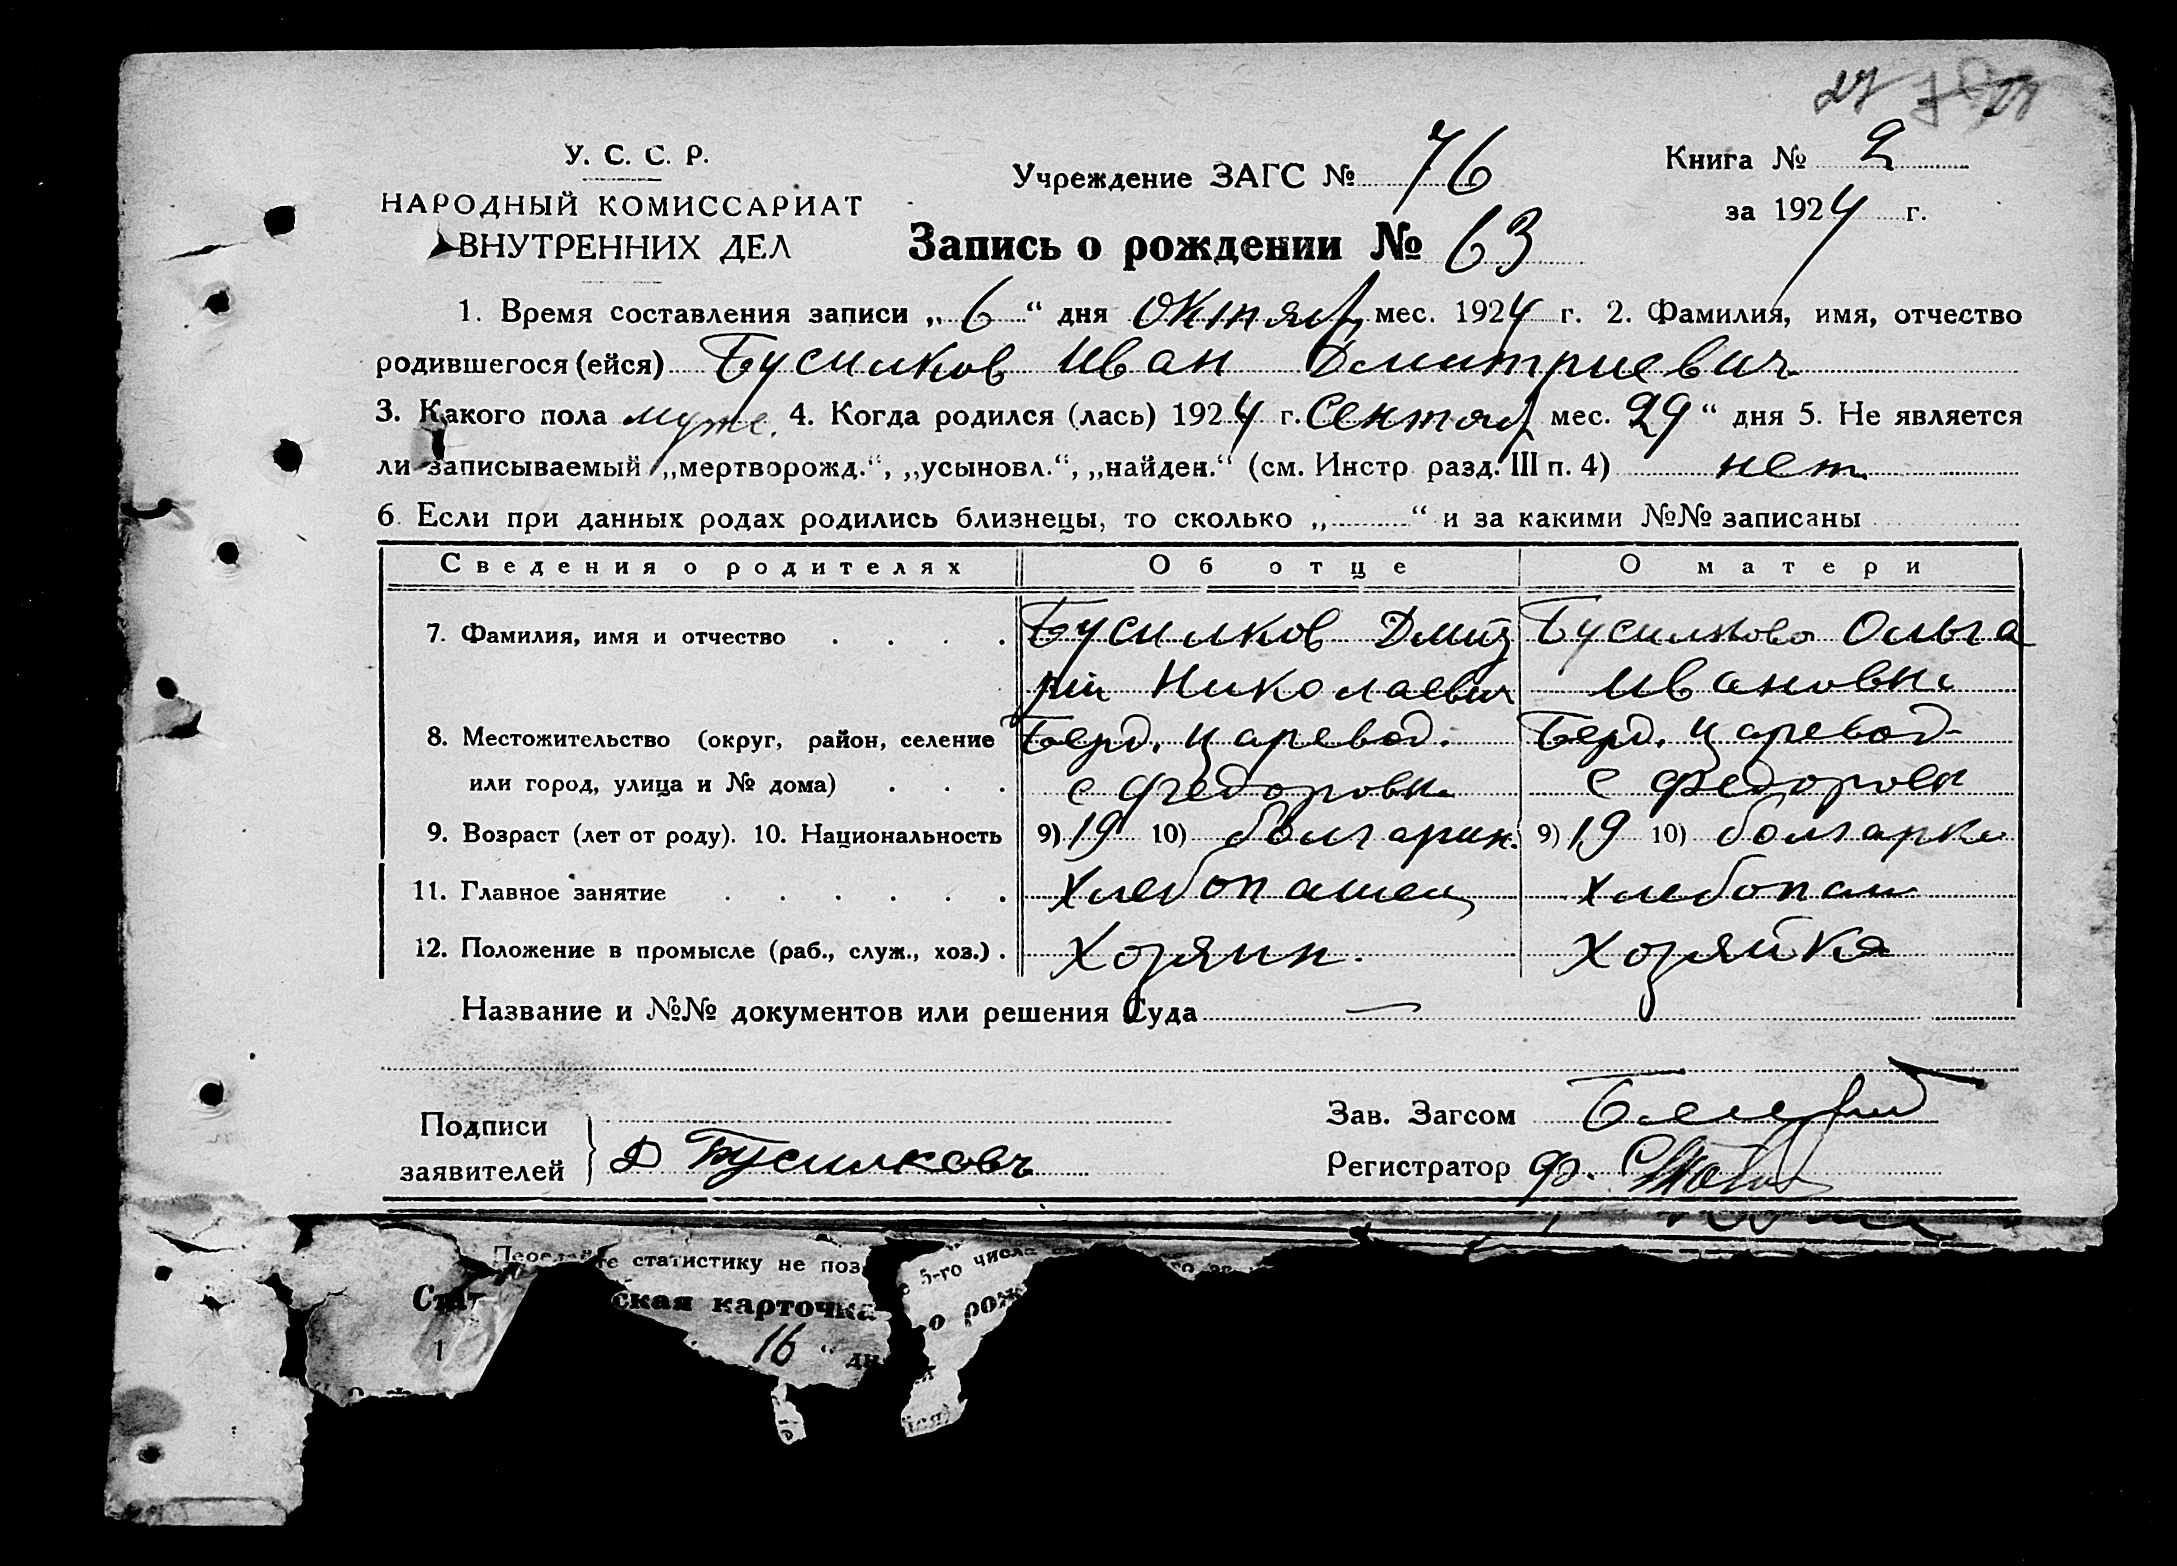 27
У. С. С. Р.
НАРОДНЫЙ КОМИССАРИАТ
ВНУТРЕННИХ ДЕЛ
Учреждение ЗАГС № 76
Книга № 2
за 1924 г.
Запись о рождении № 63
1. Время составления записи „ 6 “ дня октяб мес. 1924 г. 2. Фамилия, имя, отчество
родившегося (ейся) Бусилков Иван Дмитриевич
3. Какого пола муже. 4. Когда родился (лась) 1924 г. Сентяб мес. 29 “ дня 5. Не является
ли записываемый „мертворожд.“, „усыновл.“, „найден.“ (см. Инстр. разд. III п. 4) нет
6. Если при данных родах родились близнецы, то сколько „ “ и за какими №№ записаны
Сведения о родителях Об отце О матери
7. Фамилия, имя и отчество Бусилков Дмит Бусилкова Ольга
рий Николаевич Ивановна
8. Местожительство (округ, район, селение Берд. Царевод. Берд. Царевод
или город, улица и № дома) с Федоровка с Федоровк
9. Возраст (лет от роду). 10. Национальность 9) 19 10) болгарин. 9) 19 10) болгарка
11. Главное занятие Хлебопашец хлебопаш
12. Положение в промысле (раб., служ., хоз.) Хозяин. Хозяйка
Название и №№ документов или решения Суда —
Подписи
заявителей } Д Бусилковъ
Зав. Загсом
Регистратор Ф.
статистику не поз
5-го числа
Стат ская карточка о рож
1 16 “ дн